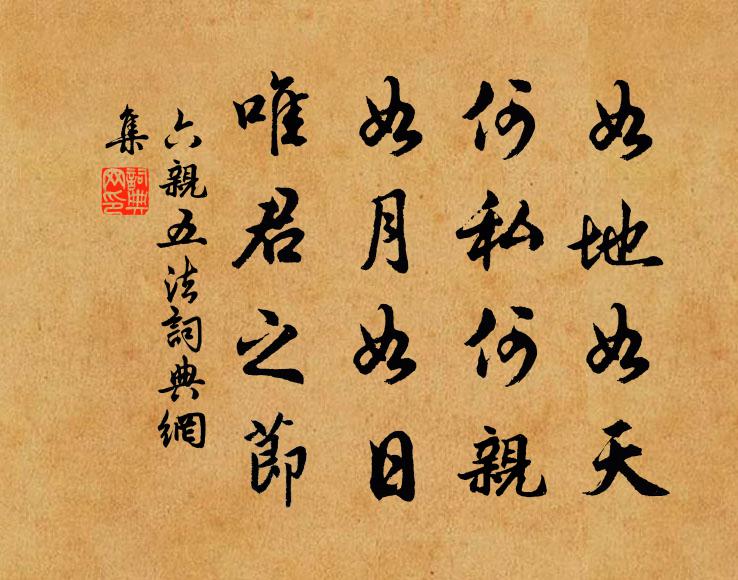 如地如天
何私何親
如月如日
唯君之節
六親五法詞典網
集
詞典
网印